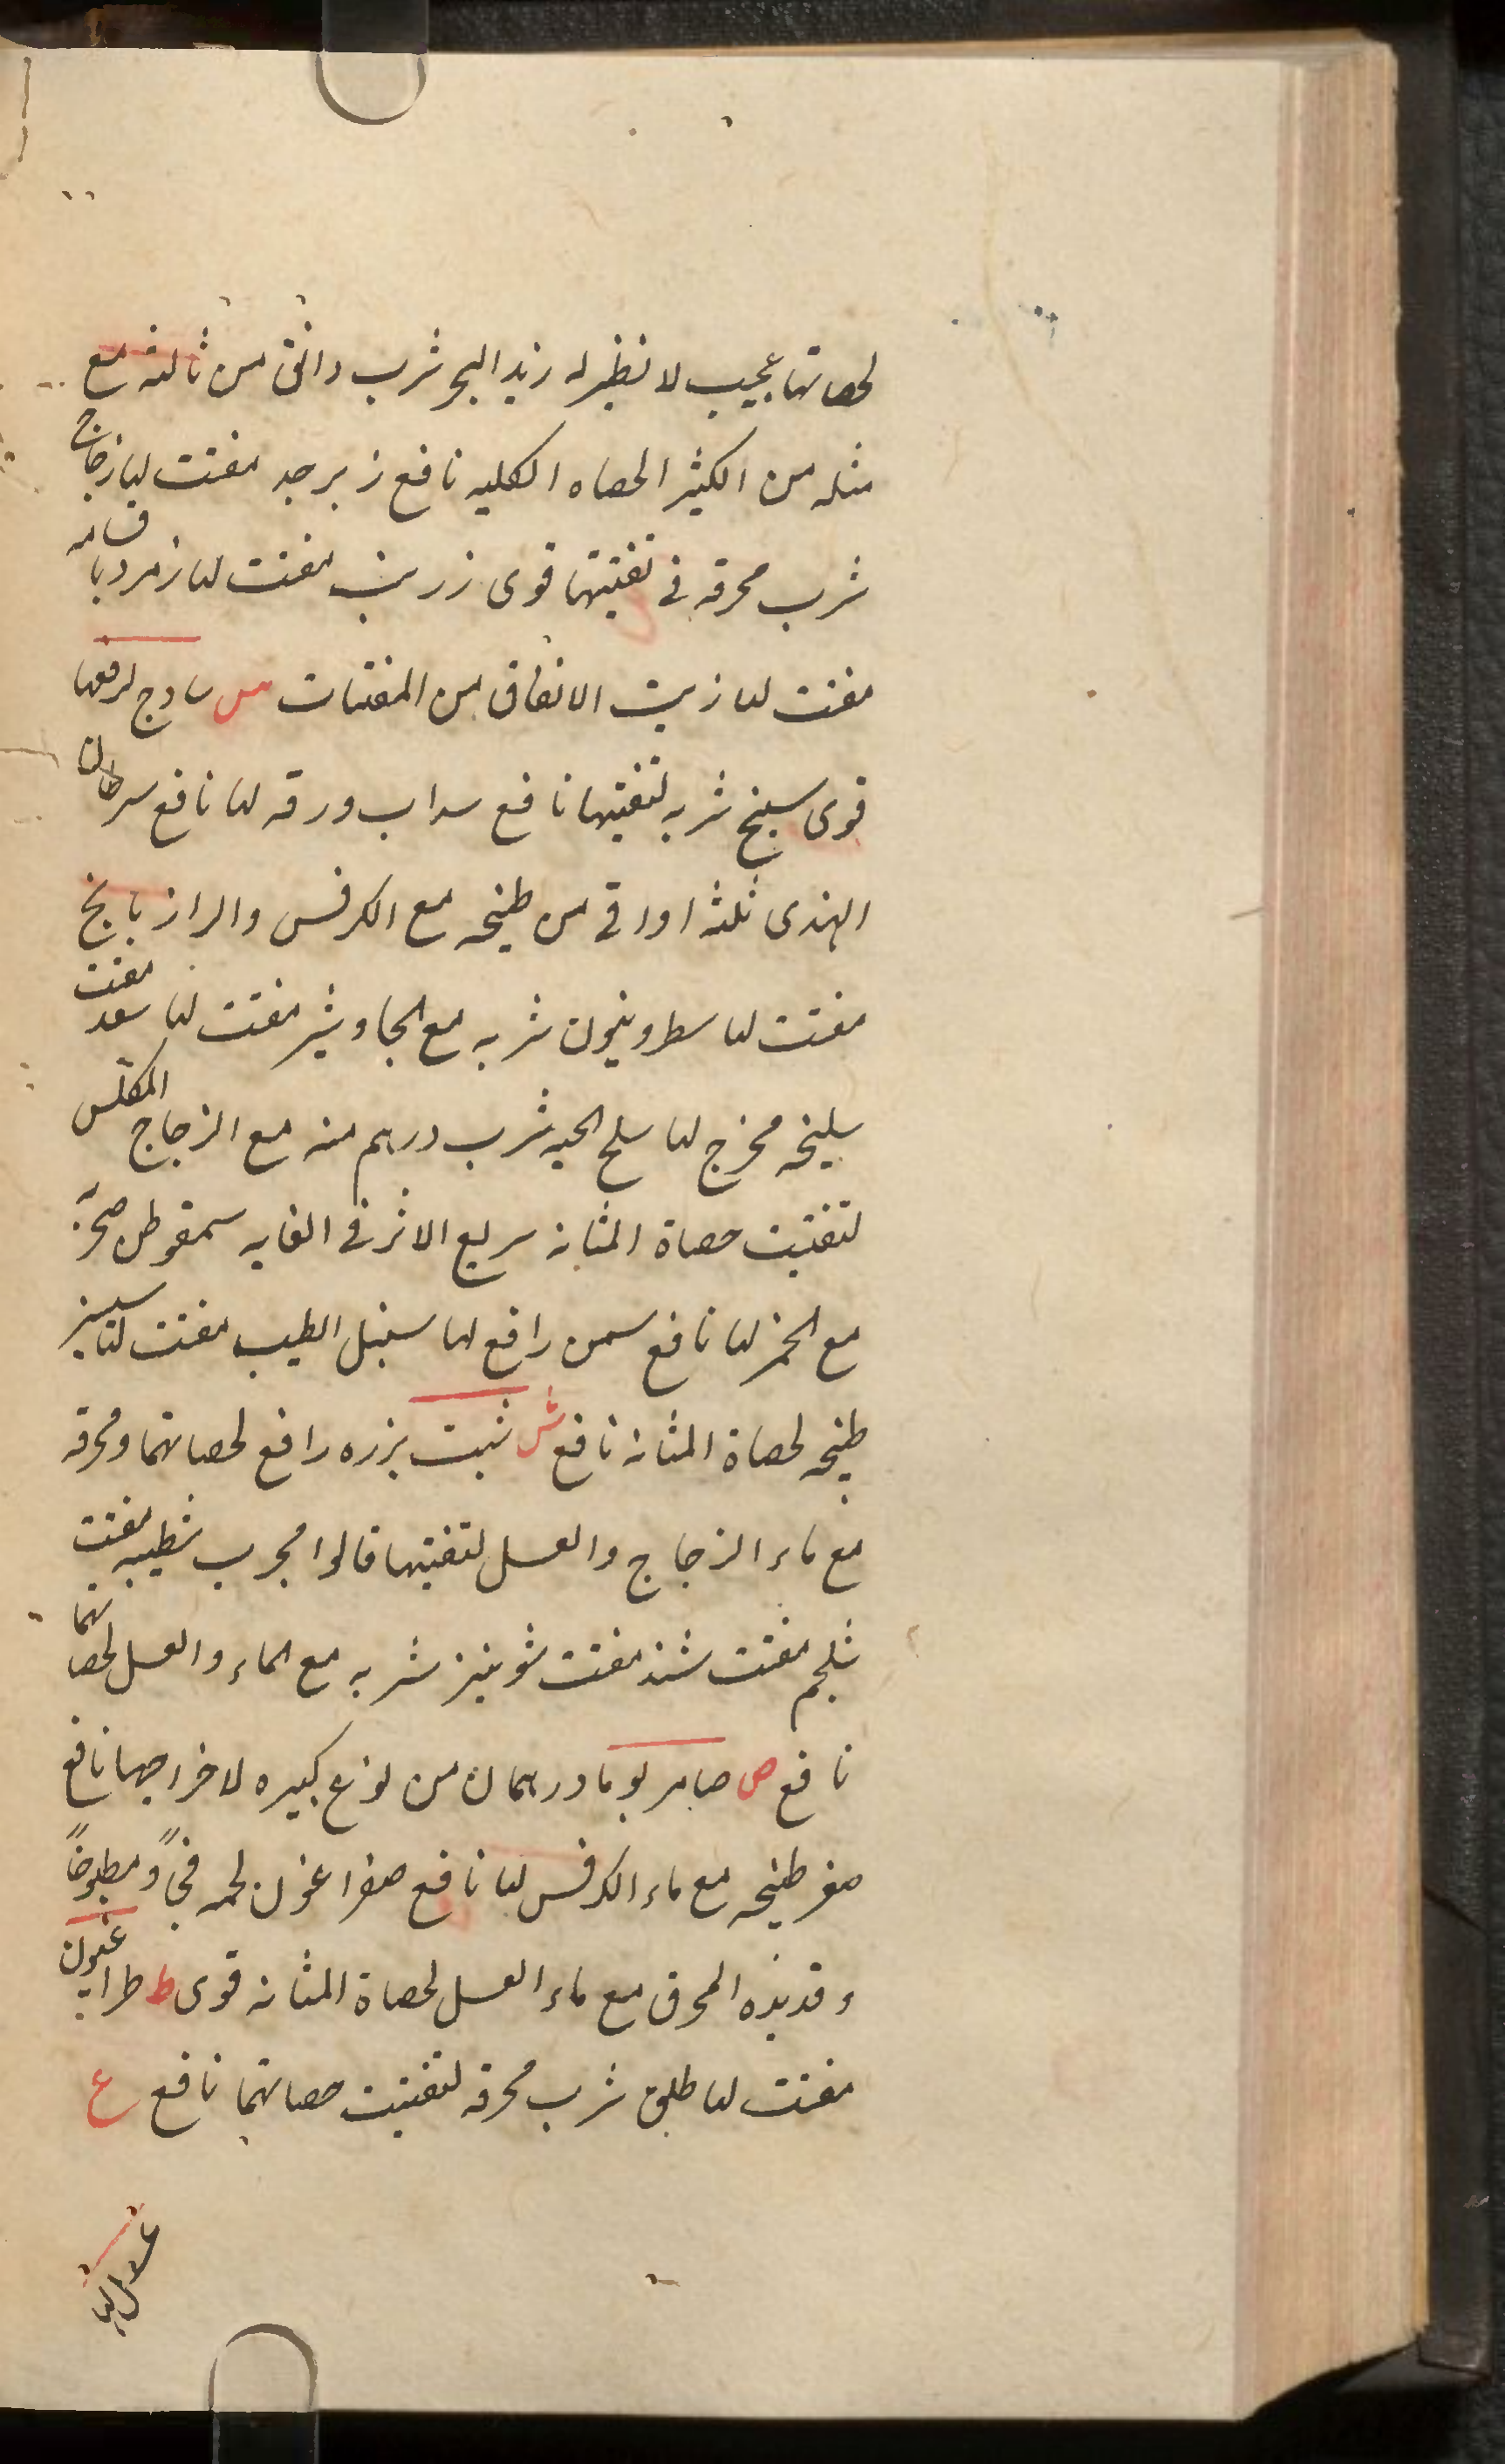 لحصاتها عجيب لا نظير له زبد البحر شرب دانق من ثالثه مع
مثله من الكثيرا لحصاه الكليه نافع زبرجد مفتت لها زجاج
شرب محرقه في تفتيتها قوى زرنب مفتت لها زمرد باقسامه
مفتت لها زيت الانفاق من المفتتات س سادج لدفعها
قوى سبخ شربه لتفتيتها نافع سداب ورقه لها نافع سرطان
الهندى ثلثه اواقى من طبيخه مع الكرفس والرازيانج
مفتت لها سطرونيون شربه مع الجاوشير مفتت لها سعد مفتت
سليخه مخرج لها سلخ الحيه شرب درهم منه مع الزجاج المكلس
لتفتيت حصاة المثانه سريع الاثر فى الغايه سمقوطن صخرى
مع الخمر لها نافع سمن رافع لها سنبل الطيب مفتت لها سيسنبر
طبيخه لحصاة المثانه نافع ش شبت بزره رافع لحصاتهما ومحرقه
مع ماء الزجاج والعسل لتفتيتها قالوا مجرب شطيبه مفتت
شلجم مفتت شند مفتت شونيز شربه مع الماء والعسل لحصاتهما
نافع ص صامريوما درهمان من نوع كبيره لاخراجها نافع
صعتر طبيخه مع ماء الكرفس لها نافع صفراغون لحمه فجاً ومطبوخاً
وقديده المحرق مع ماء العسل لحصاة المثانه قوى ط طراغيون
مفتت لها طلق شرب محرقه لتفتيت حصاتهما نافع ع